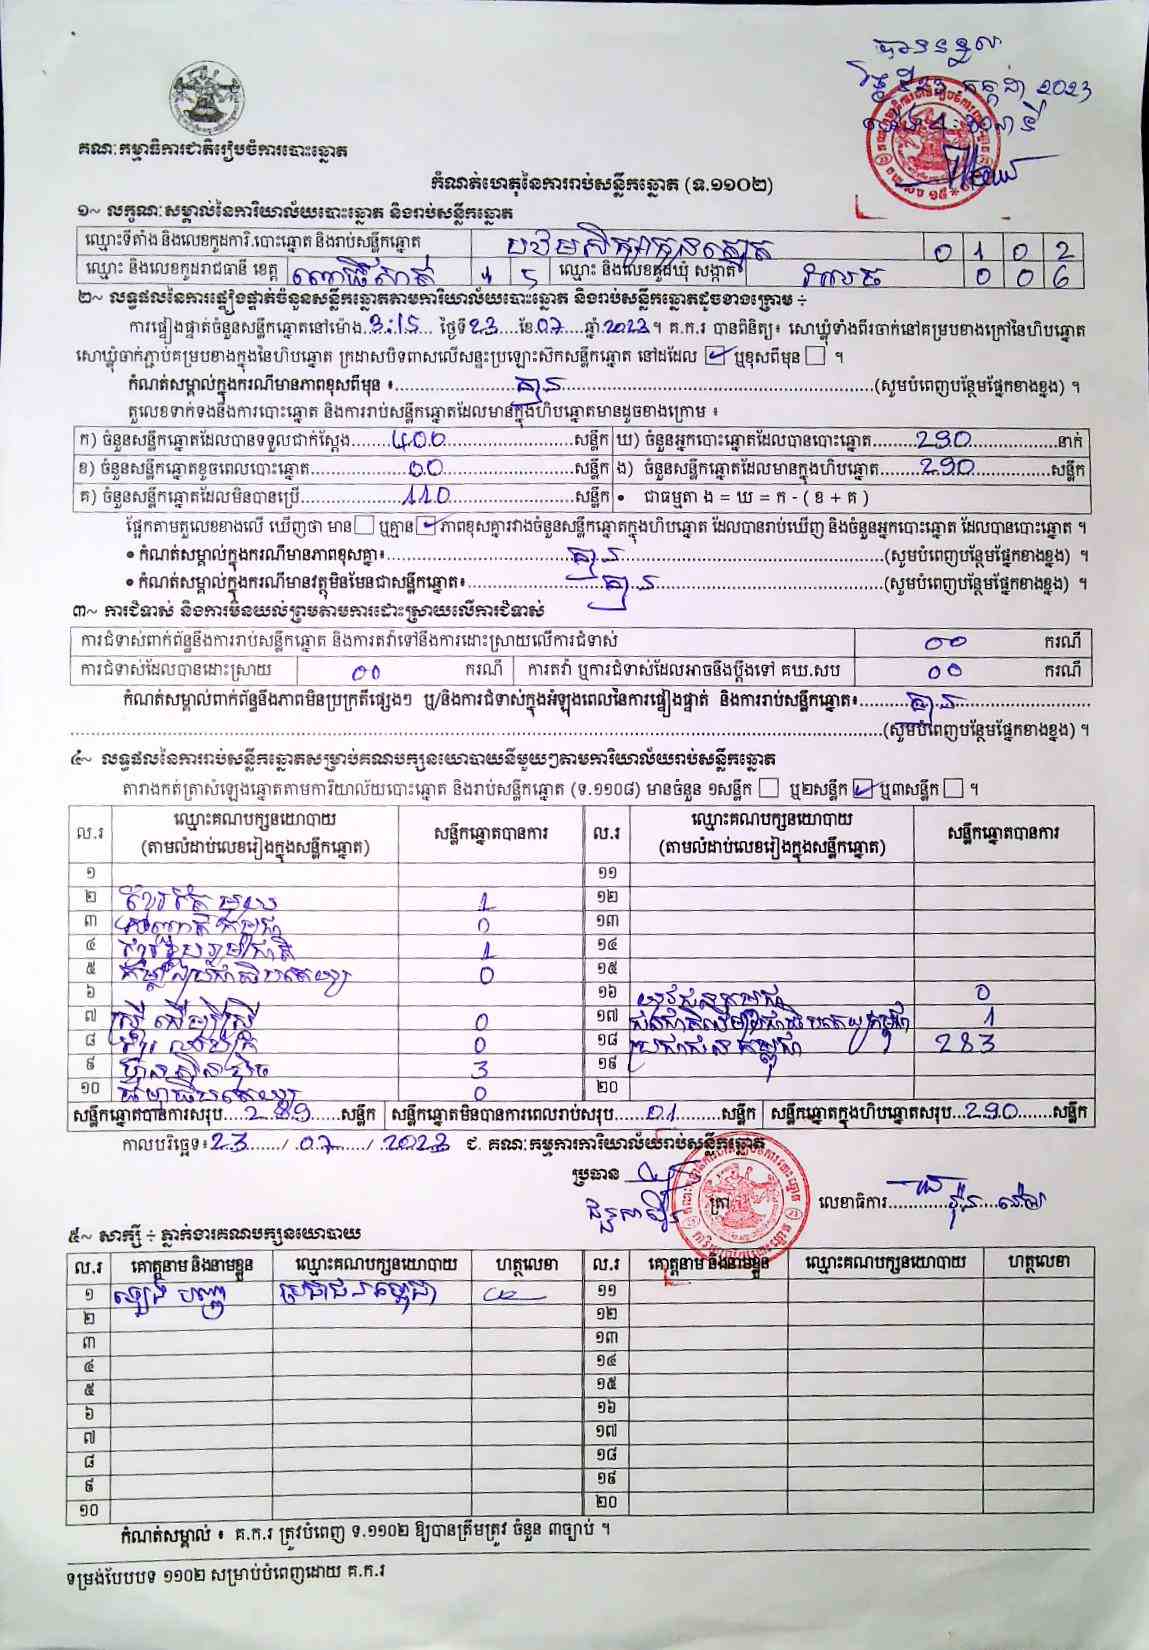 បានទទួល
២៣ កក្កដា 2023
គណៈកម្មាធិការជាតិរៀបចំការបោះឆ្នោត
កំណត់ហេតុនៃការរាប់សន្លឹកឆ្នោត (ទ.១១០២)
១~ លក្ខណៈសម្គាល់នៃការិយាល័យបោះឆ្នោត និងរាប់សន្លឹកឆ្នោត
ឈ្មោះទីតាំង និងលេខកូដការិ.បោះឆ្នោត និងរាប់សន្លឹកឆ្នោត 0 1 0 2
ឈ្មោះ និងលេខកូដរាជធានី ខេត្ត ពោធិ៍សាត់ 1 5 ឈ្មោះ និងលេខកូដឃុំ សង្កាត់ 0 0 6
២~ លទ្ធផលនៃការផ្ទៀងផ្ទាត់ចំនួនសន្លឹកឆ្នោតតាមការិយាល័យបោះឆ្នោត និងរាប់សន្លឹកឆ្នោតដូចខាងក្រោម ÷
ការផ្ទៀងផ្ទាត់ចំនួនសន្លឹកឆ្នោតនៅម៉ោង.3:15.... ថ្ងៃទី23....ខែ.07....ឆ្នាំ.2023។ គ.ក.រ បានពិនិត្យ៖ សោឃ្លុំទាំងពីរចាក់នៅគម្របខាងក្រៅនៃហិបឆ្នោត
សោឃ្លុំចាក់ភ្ជាប់គម្របខាងក្នុងនៃហិបឆ្នោត ក្រដាសបិទពាសលើសន្ទះប្រឡោះស៊កសន្លឹកឆ្នោត នៅដដែល ☑ ឬខុសពីមុន ☐ ។
កំណត់សម្គាល់ក្នុងករណីមានភាពខុសពីមុន ៖......គ្មាន......(សូមបំពេញបន្ថែមផ្នែកខាងខ្នង) ។
តួលេខទាក់ទងនឹងការបោះឆ្នោត និងការរាប់សន្លឹកឆ្នោតដែលមានក្នុងហិបឆ្នោតមានដូចខាងក្រោម ៖
ក) ចំនួនសន្លឹកឆ្នោតដែលបានទទួលជាក់ស្តែង......400......សន្លឹក ឃ) ចំនួនអ្នកបោះឆ្នោតដែលបានបោះឆ្នោត......290......នាក់
ខ) ចំនួនសន្លឹកឆ្នោតខូចពេលបោះឆ្នោត......00......សន្លឹក ង) ចំនួនសន្លឹកឆ្នោតដែលមានក្នុងហិបឆ្នោត......290......សន្លឹក
គ) ចំនួនសន្លឹកឆ្នោតដែលមិនបានប្រើ......110......សន្លឹក • ជាធម្មតា ង = ឃ = ក - ( ខ + គ )
ផ្អែកតាមតួលេខខាងលើ ឃើញថា មាន ☐ ឬគ្មាន ☑ ភាពខុសគ្នារវាងចំនួនសន្លឹកឆ្នោតក្នុងហិបឆ្នោត ដែលបានរាប់ឃើញ និងចំនួនអ្នកបោះឆ្នោត ដែលបានបោះឆ្នោត ។
• កំណត់សម្គាល់ក្នុងករណីមានភាពខុសគ្នា៖......គ្មាន......(សូមបំពេញបន្ថែមផ្នែកខាងខ្នង) ។
• កំណត់សម្គាល់ក្នុងករណីមានវត្ថុមិនមែនជាសន្លឹកឆ្នោត៖......គ្មាន......(សូមបំពេញបន្ថែមផ្នែកខាងខ្នង) ។
៣~ ការជំទាស់ និងការមិនយល់ព្រមតាមការដោះស្រាយលើការជំទាស់
ការជំទាស់ពាក់ព័ន្ធនឹងការរាប់សន្លឹកឆ្នោត និងការតវ៉ាទៅនឹងការដោះស្រាយលើការជំទាស់ 00 ករណី
ការជំទាស់ដែលបានដោះស្រាយ 00 ករណី ការតវ៉ា ឬការជំទាស់ដែលអាចនឹងប្តឹងទៅ គឃ.សប 00 ករណី
កំណត់សម្គាល់ពាក់ព័ន្ធនឹងភាពមិនប្រក្រតីផ្សេងៗ ឬ/និងការជំទាស់ក្នុងអំឡុងពេលនៃការផ្ទៀងផ្ទាត់ និងការរាប់សន្លឹកឆ្នោត៖......គ្មាន......
......(សូមបំពេញបន្ថែមផ្នែកខាងខ្នង) ។
៤~ លទ្ធផលនៃការរាប់សន្លឹកឆ្នោតសម្រាប់គណបក្សនយោបាយនីមួយៗតាមការិយាល័យរាប់សន្លឹកឆ្នោត
តារាងកត់ត្រាសំឡេងឆ្នោតតាមការិយាល័យបោះឆ្នោត និងរាប់សន្លឹកឆ្នោត (ទ.១១០៨) មានចំនួន ១សន្លឹក ☐ ឬ២សន្លឹក ☑ ឬ៣សន្លឹក ☐ ។
ល.រ ឈ្មោះគណបក្សនយោបាយ (តាមលំដាប់លេខរៀងក្នុងសន្លឹកឆ្នោត) សន្លឹកឆ្នោតបានការ ល.រ ឈ្មោះគណបក្សនយោបាយ (តាមលំដាប់លេខរៀងក្នុងសន្លឹកឆ្នោត) សន្លឹកឆ្នោតបានការ
១ ១១
២ ខ្មែរតែមួយ 1 ១២
៣ 0 ១៣
៤ 1 ១៤
៥ 0 ១៥
៦ ១៦ យុវជនកម្ពុជា 0
៧ ស្ត្រីដើម្បីស្ត្រី 0 ១៧ 1
៨ 0 ១៨ ប្រជាជនកម្ពុជា 283
៩ ហ៊្វុនស៊ិនប៉ិច 3 ១៩
១០ ធម្មាធិបតេយ្យ 0 ២០
សន្លឹកឆ្នោតបានការសរុប...289......សន្លឹក សន្លឹកឆ្នោតមិនបានការពេលរាប់សរុប......01......សន្លឹក សន្លឹកឆ្នោតក្នុងហិបឆ្នោតសរុប...290......សន្លឹក
កាលបរិច្ឆេទ៖23....../.07....../.2023 ជ. គណៈកម្មការការិយាល័យរាប់សន្លឹកឆ្នោត
ប្រធាន
ត្រា លេខាធិការ............
៥~ សាក្សី ÷ ភ្នាក់ងារគណបក្សនយោបាយ
ល.រ គោត្តនាម និងនាមខ្លួន ឈ្មោះគណបក្សនយោបាយ ហត្ថលេខា ល.រ គោត្តនាម និងនាមខ្លួន ឈ្មោះគណបក្សនយោបាយ ហត្ថលេខា
១ ឡេង បញ្ញា ប្រជាជនកម្ពុជា ១១
២ ១២
៣ ១៣
៤ ១៤
៥ ១៥
៦ ១៦
៧ ១៧
៨ ១៨
៩ ១៩
១០ ២០
កំណត់សម្គាល់ ៖ គ.ក.រ ត្រូវបំពេញ ទ.១១០២ ឱ្យបានត្រឹមត្រូវ ចំនួន ៣ច្បាប់ ។
ទម្រង់បែបបទ ១១០២ សម្រាប់បំពេញដោយ គ.ក.រ